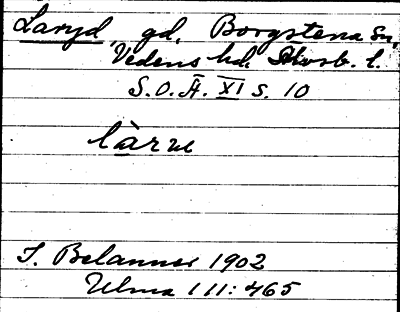 Laryd, gd, Borgstena sn,
Vedens hd. Älvsb. l.
S.O.Ä. XI s. 10
làrne
T. Belanner 1902
Ulma 111:465